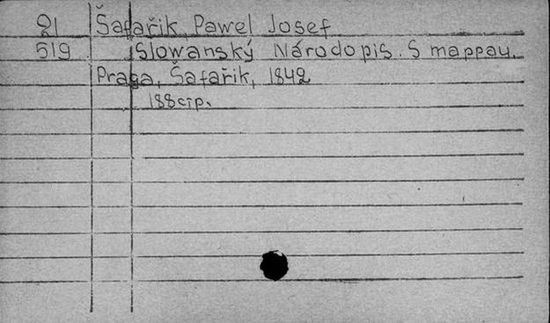 21 Šafařik, Pawel Josef
519 Slowanský Národopis. S mappau.
Praga, Šafařik, 1842
188стр.